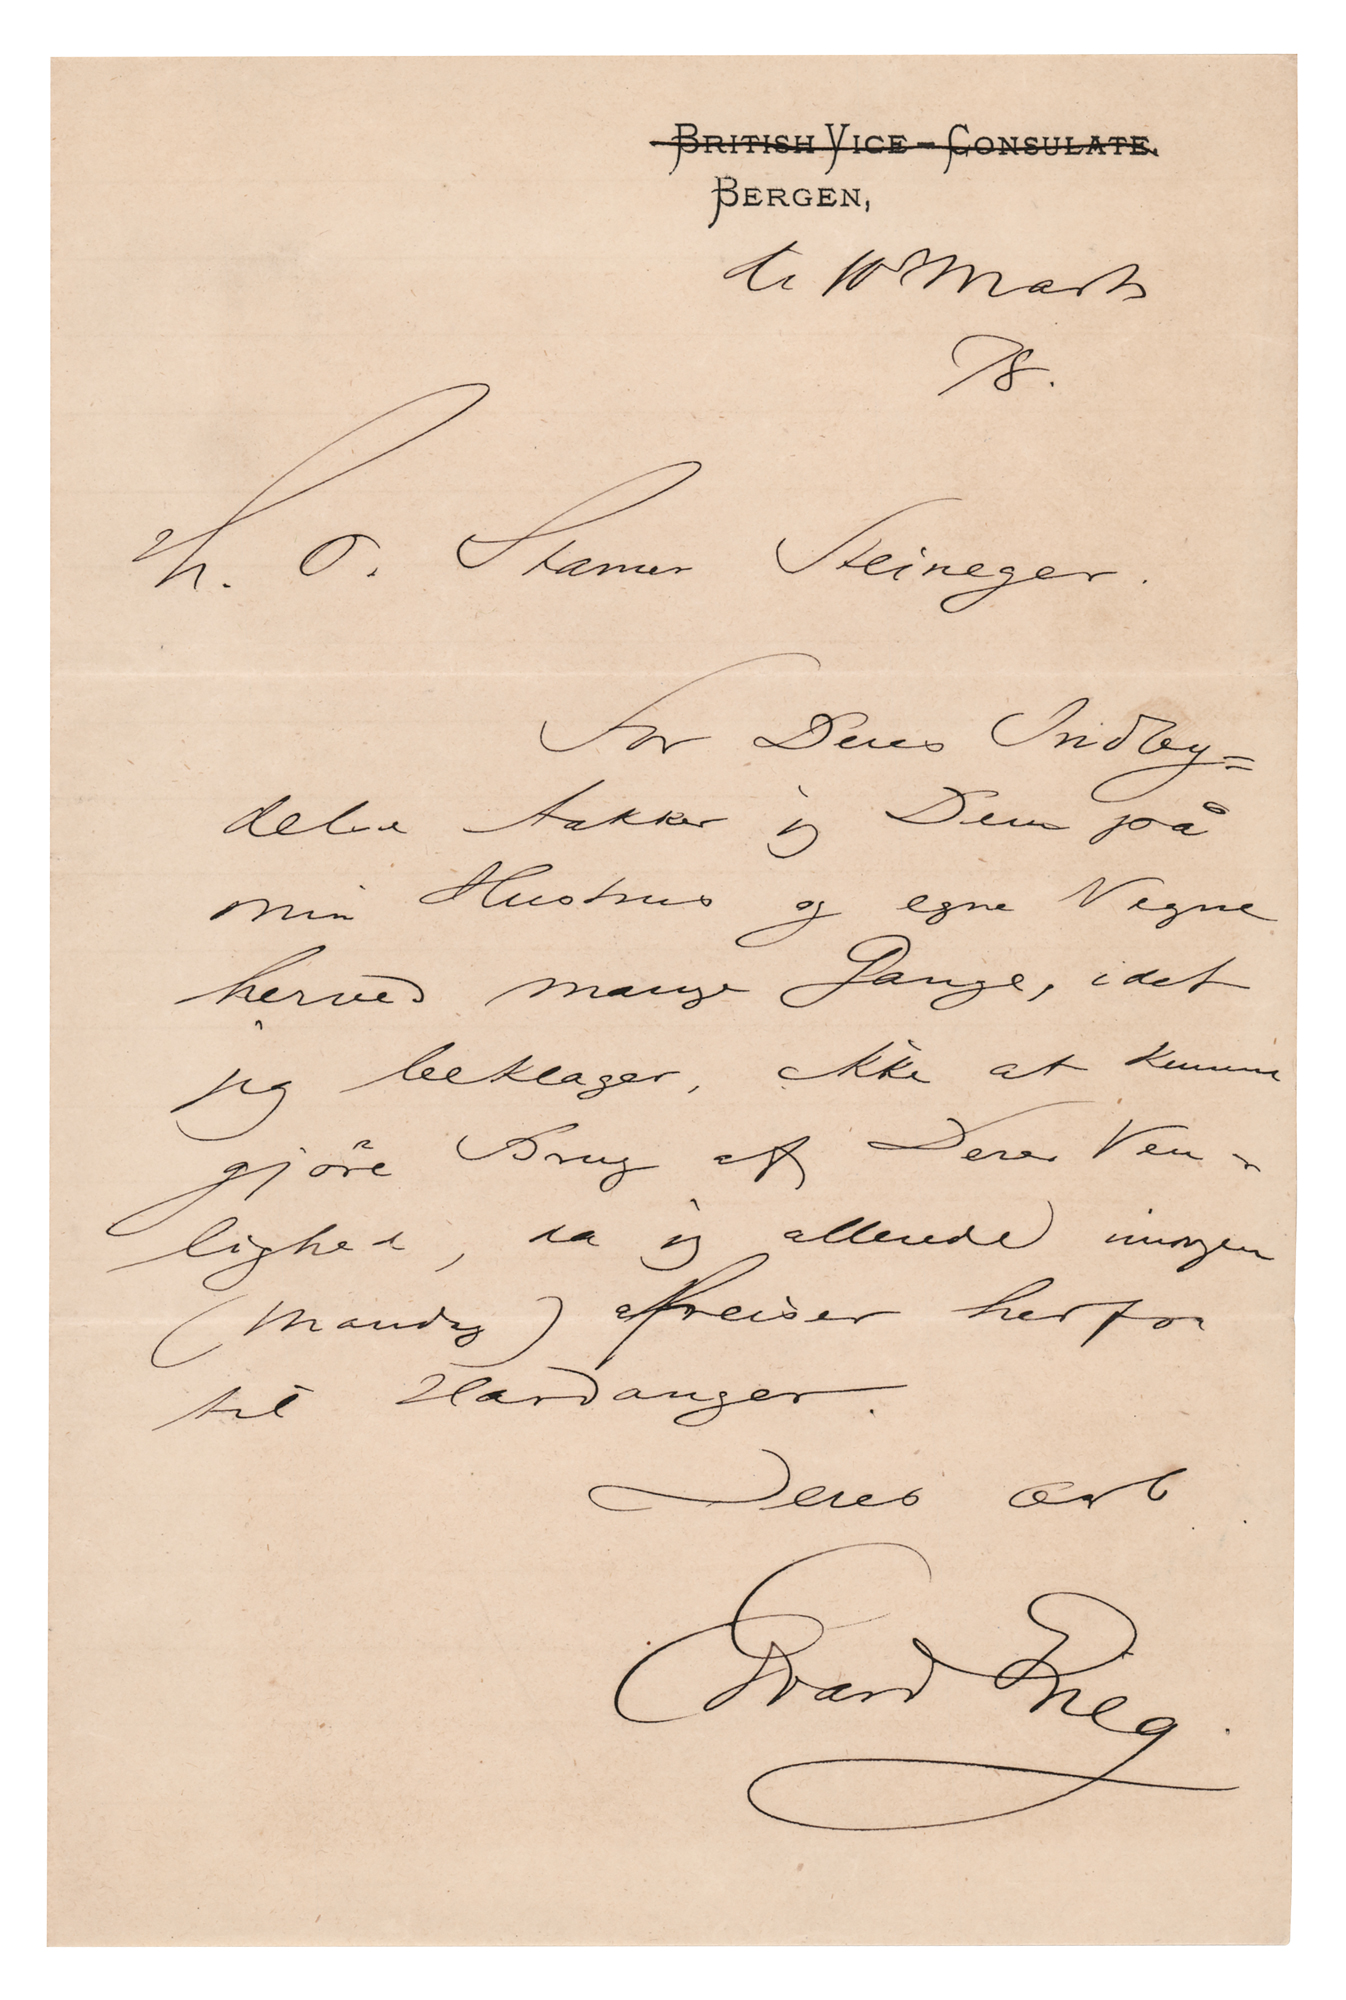 BRITISH VICE-CONSULATE.
BERGEN,
10 Marts
78.
H. O. Stamer Steineger.
For Deres Indby=
delse takker jeg Dem på
min Hustrus og egne Vegne
herved mange Gange, idet
jeg beklager, ikke at kunne
gjöre Brug af Deres Ven-
lighed, da jeg allerede imorgen
(Mandag) afreiser herfra
til Hardanger.
Deres ærb
Edvard Grieg.